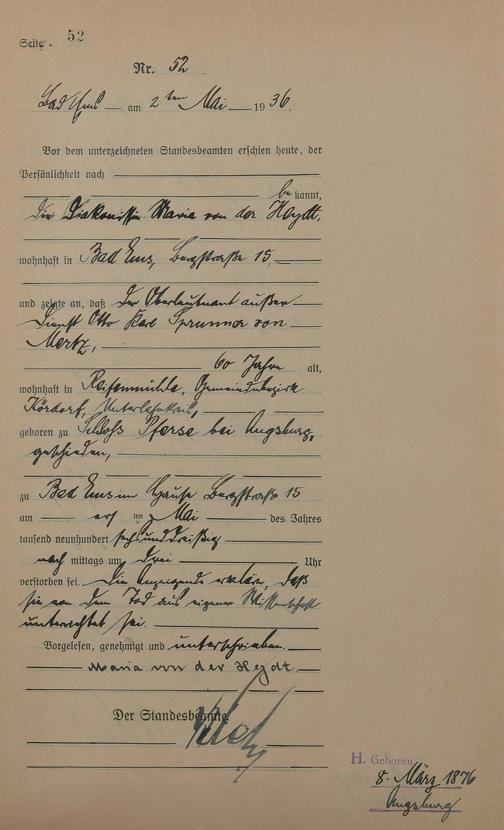 Seite 52
Nr. 52
Bad Ems am 2ten Mai 1936.
Vor dem unterzeichneten Standesbeamten erschien heute, der
Persönlichkeit nach
bekannt,
die Diakonissin Maria von der Heydt,
wohnhaft in Bad Ems, Bergstraße 15,
und zeigte an, daß der Oberleutnant außer
Dienst Otto Karl Sprunner von
Mertz,
60 Jahre alt,
wohnhaft in Gemeindebezirk
Kördorf, Unterlahnkreis,
geboren zu Schloß Pferse bei Augsburg,
geschieden,
zu Bad Ems im Hause Bergstraße 15
am ersten Mai des Jahres
tausend neunhundert sechsunddreißig
nach mittags um drei Uhr
verstorben sei. Die Anzeigende erklärte, daß
sie von dem Tod aus eigener Wissenschaft
unterrichtet sei.
Vorgelesen, genehmigt und unterschrieben.
Maria von der Heydt
Der Standesbeamte.
H. Geboren
8. März 1876
Augsburg